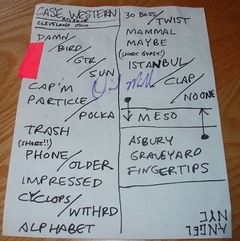 CASE WESTERN
CLEVELAND OHIO
DAMN/
BIRD/
GTR/
SUN
CAP'M
PARTICLE/
POLKA
TRASH
(SHORT!!)
PHONE/
OLDER
IMPRESSED
CYCLOPS/
WTHRD
ALPHABET
30 BASS/
TWIST
MAMMAL
MAYBE
(SHORT GYPSY)
ISTANBUL/
CLAP/
NO ONE
MESO
ASBURY
GRAVEYARD
FINGERTIPS
ANGEL
NYC